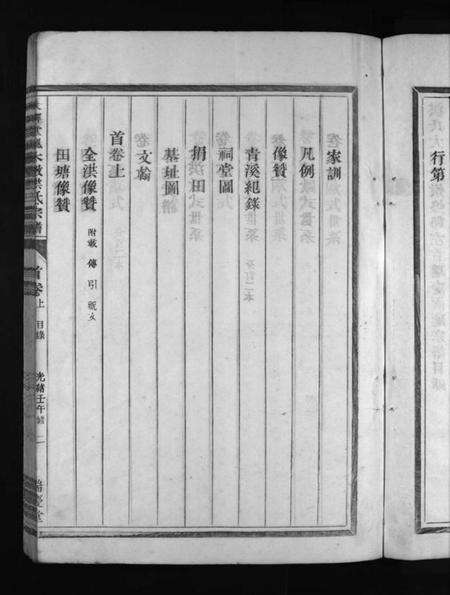 行第
家訓
凡例
像贊
青溪紀錄
祠堂圖
捐田
基址圖
文翰
首卷上
仝洪像贊 附載 傳 引 祝文
田塘像贊
洪氏宗譜 首卷 上 目錄 光緒壬午 二